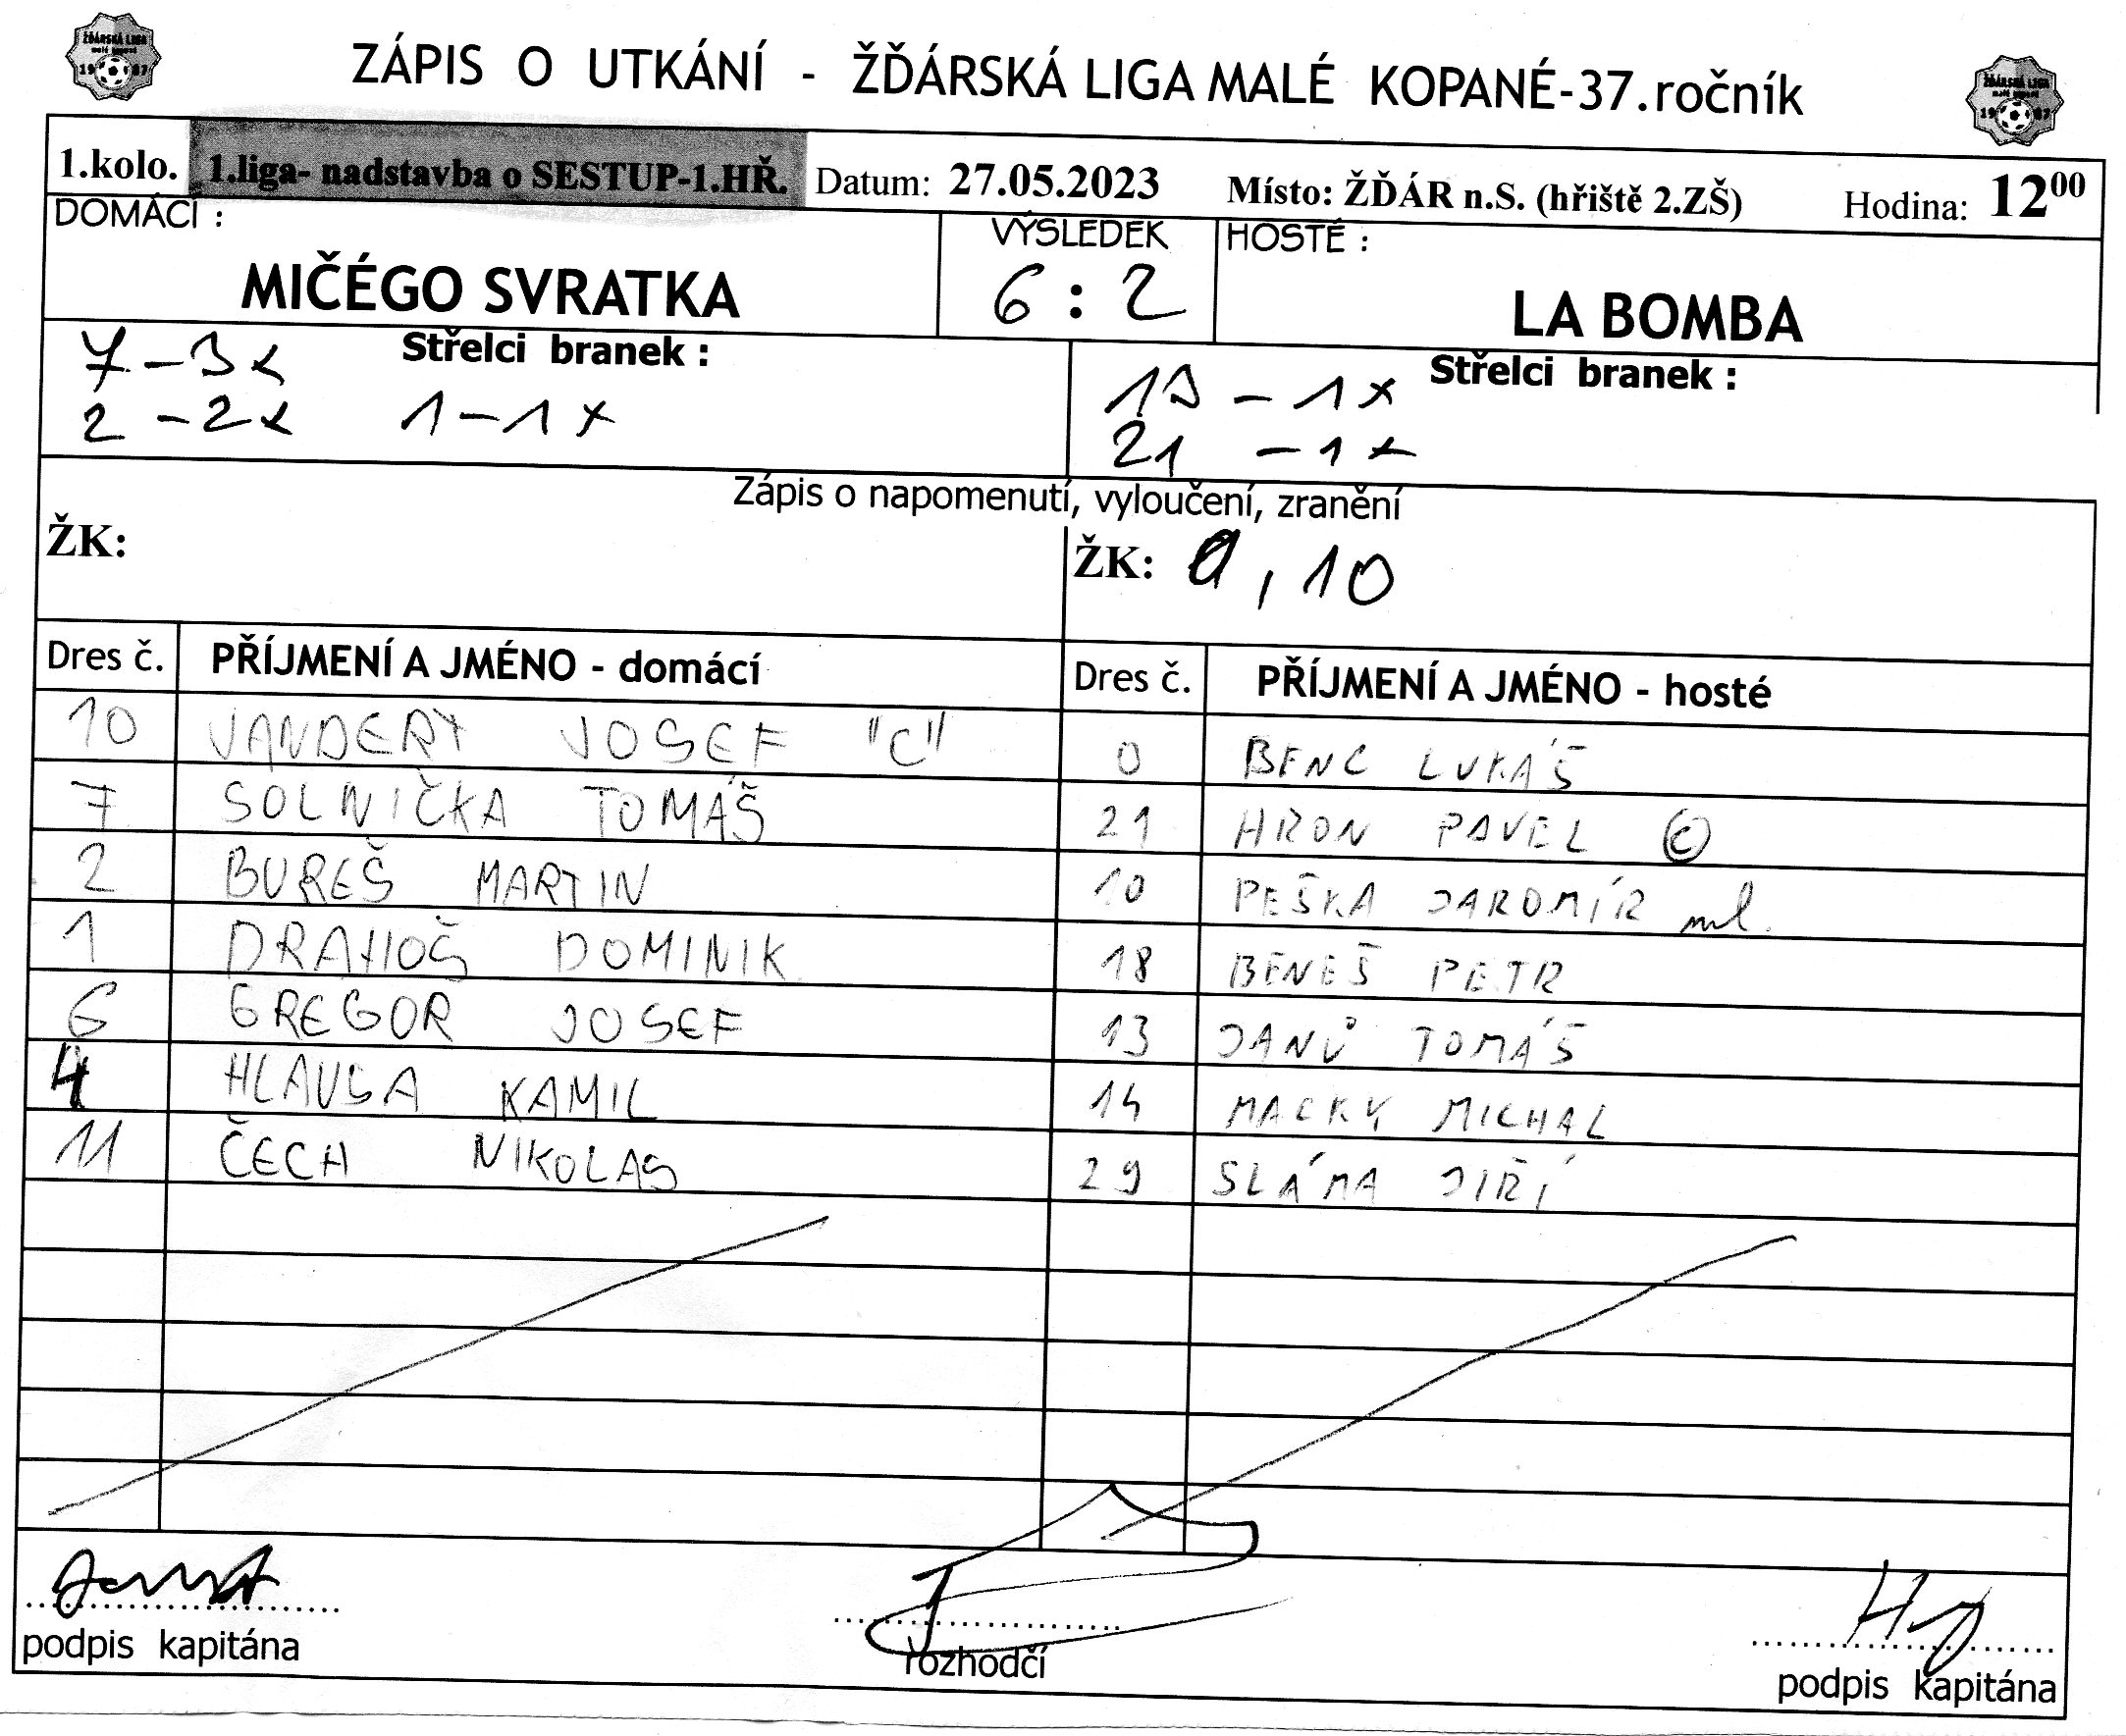 ŽĎÁRSKÁ LIGA
malé kopané
19 87
ZÁPIS O UTKÁNÍ - ŽĎÁRSKÁ LIGA MALÉ KOPANÉ-37.ročník
ŽĎÁRSKÁ LIGA
malé kopané
19 87
1.kolo. 1.liga- nadstavba o SESTUP-1.HŘ. Datum: 27.05.2023 Místo: ŽĎÁR n.S. (hřiště 2.ZŠ) Hodina: 12⁰⁰
DOMÁCÍ : VÝSLEDEK HOSTÉ :
MIČÉGO SVRATKA 6 : 2 LA BOMBA
7 - 3x Střelci branek : Střelci branek :
2 - 2x 1 - 1x - 1x
21 - 1x
Zápis o napomenutí, vyloučení, zranění
ŽK: ŽK: , 10
Dres č. PŘÍJMENÍ A JMÉNO - domácí Dres č. PŘÍJMENÍ A JMÉNO - hosté
10 JOSEF "C" 0 BENC LUKÁŠ
7 SOLNIČKA TOMÁŠ 21 HRON PAVEL ©
2 BUREŠ MARTIN 10 PEŠKA JAROMÍR ml.
1 DRAHOŠ DOMINIK 18 BENEŠ PETR
6 GREGOR JOSEF 13 JANŮ TOMÁŠ
4 HLAVSA KAMIL 14 MACKŮ MICHAL
11 ČECH NIKOLAS 29 SLÁMA JIŘÍ
podpis kapitána rozhodčí podpis kapitána